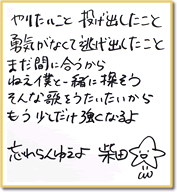 やりたいこと 投げ出したこと
勇気がなくて逃げ出したこと
まだ間に合うから
ねえ僕と一緒に探そう
そんな歌をうたいたいから
もう少しだけ強くなるよ
忘れらんねえよ 柴田